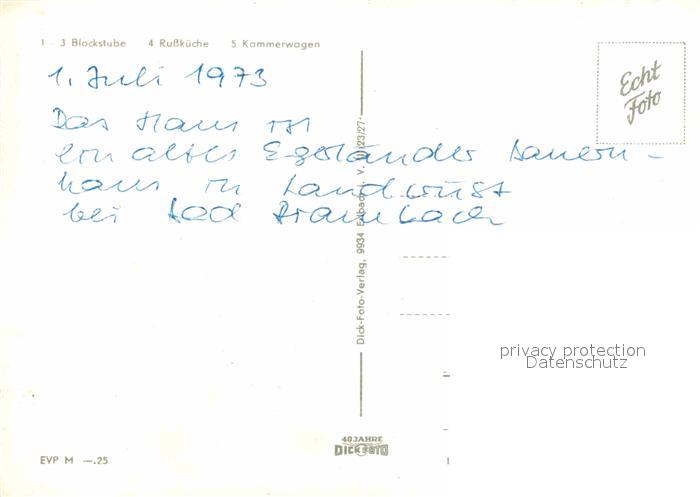 1 - 3 Blockstube 4 Rußküche 5 Kammerwagen
1. Juli 1973
Das Haus ist
ein altes Egerländer Bauern-
haus in Landwüst
bei Bad Brambach
Echt
Foto
Dick-Foto-Verlag, 9934 Erlbach i. V.
privacy protection
Datenschutz
40 JAHRE
DICK FOTO
EVP M —.25